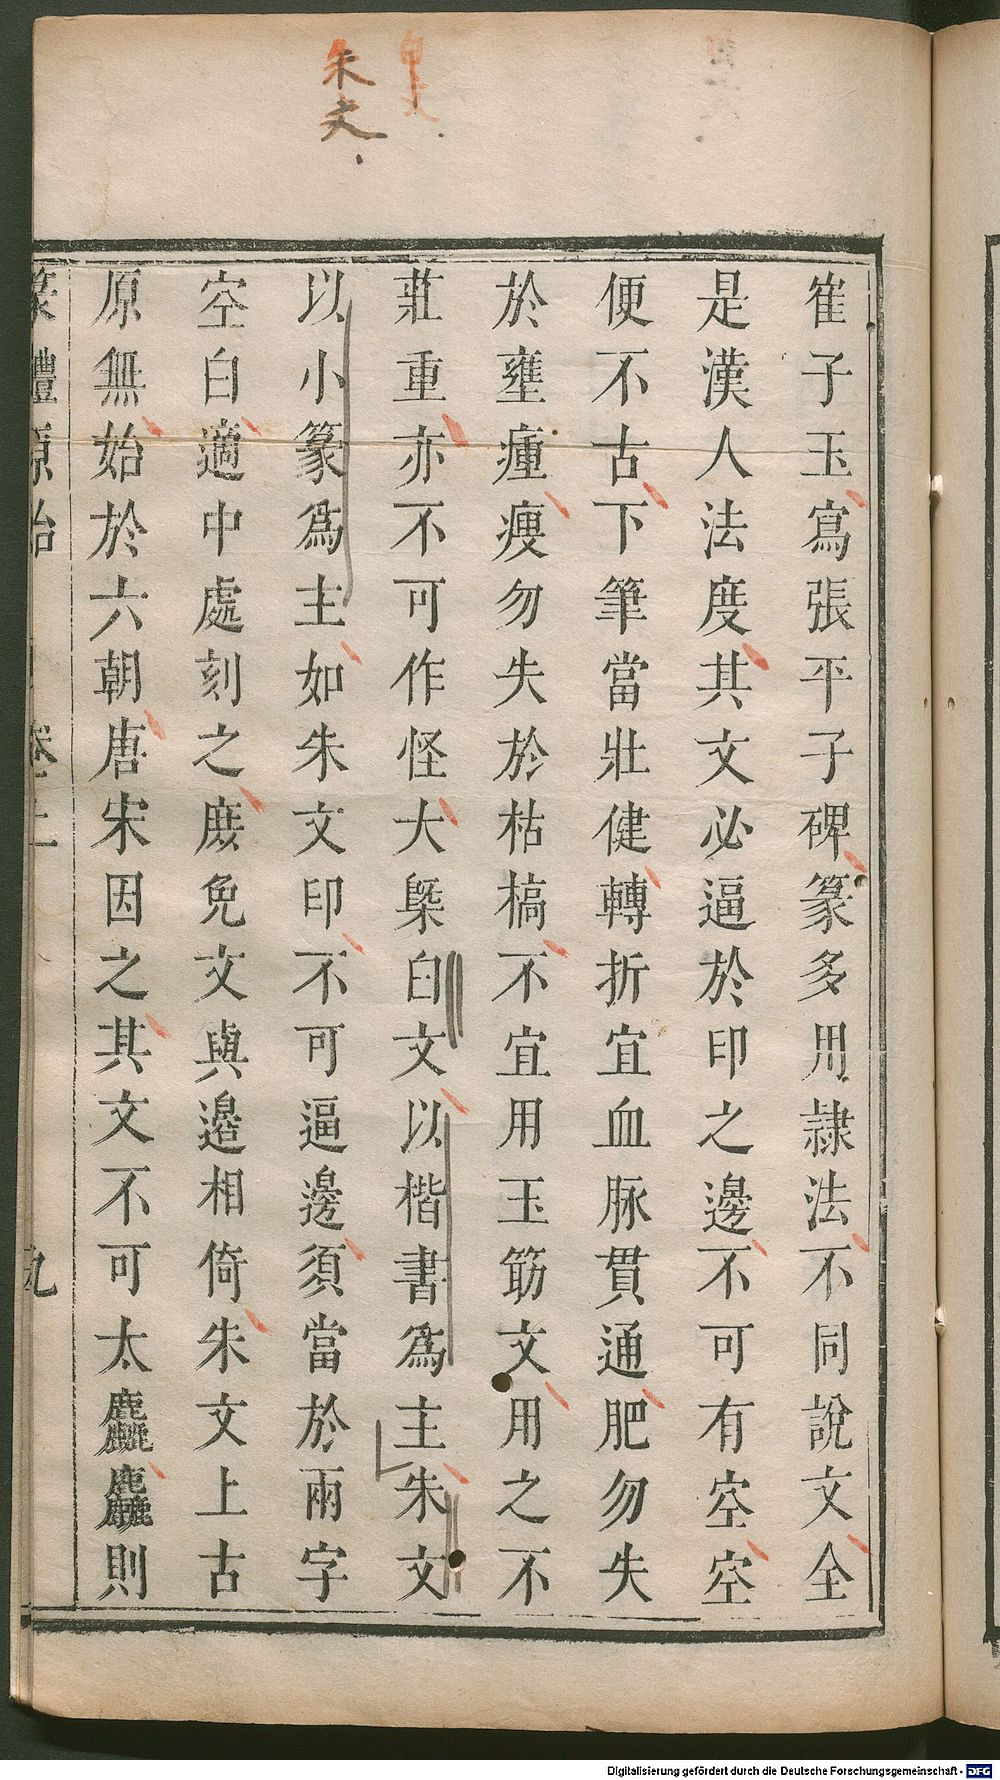 白文
朱文
崔子玉寫張平子碑篆多用隷法不同說文全
是漢人法度其文必逼於印之邊不可有空空
便不古下筆當壯健轉折宜血脉貫通肥勿失
於壅瘇瘦勿失於枯槁不宜用玉筯文用之不
莊重亦不可作怪大槩白文以楷書爲主朱文
以小篆爲主如朱文印不可逼邊須當於兩字
空白適中處刻之庶免文與邉相倚朱文上古
原無始於六朝唐宋因之其文不可太麤麤則
篆體原始 卷上 九
Digitalisierung gefördert durch die Deutsche Forschungsgemeinschaft - DFG